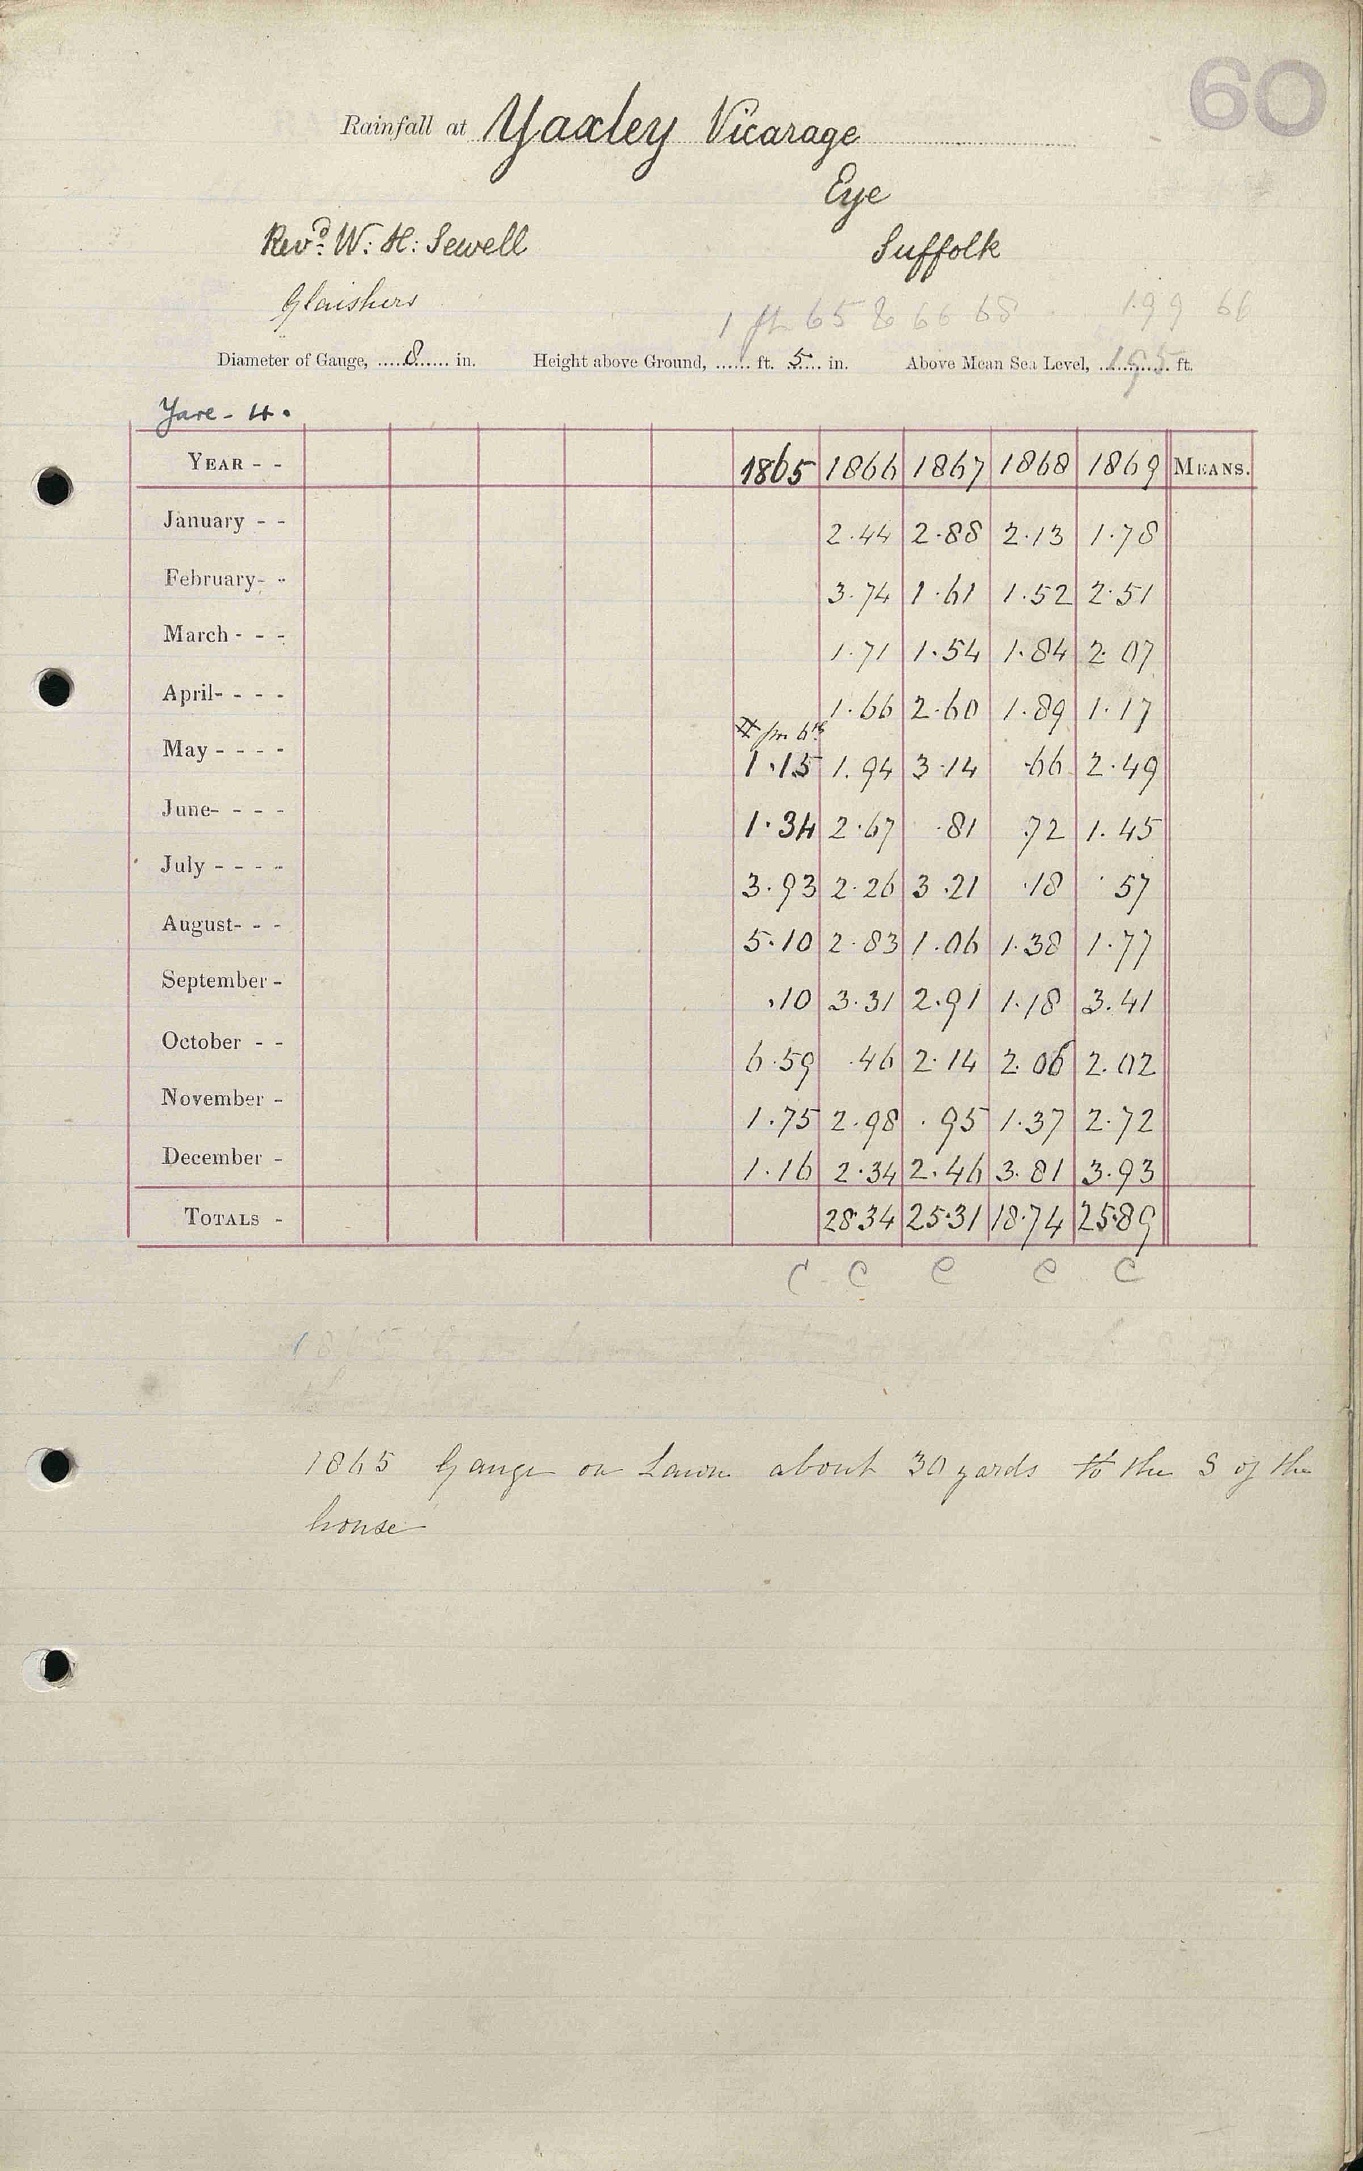 60
Rainfall at Yaxley Vicarage
Eye
Revd. W: H: Sewell Suffolk
Glaishers
1 ft 65 & 66 68 199 66
Diameter of Gauge, 8 in. Height above Ground, ft. 5 in. Above Mean Sea Level, 195 ft.
Yare - 4.
YEAR - - 1865 1866 1867 1868 1869 MEANS.
January - - 2.44 2.88 2.13 1.78
February- - 3.74 1.61 1.52 2.51
March - - - 1.71 1.54 1.84 2.07
April- - - - 1.66 2.60 1.89 1.17
fm 6th
May - - - - 1.15 1.94 3.14 .66 2.49
June- - - - 1.34 2.67 .81 .72 1.45
July - - - - 3.93 2.26 3.21 .18 .57
August- - - 5.10 2.83 1.06 1.38 1.77
September - .10 3.31 2.91 1.18 3.41
October - - 6.59 .46 2.14 2.06 2.02
November - 1.75 2.98 .95 1.37 2.72
December - 1.16 2.34 2.46 3.81 3.93
TOTALS - 28.34 25.31 18.74 25.89
C C C C C
1865 Gauge on Lawn about 30 yards to the S of the
house